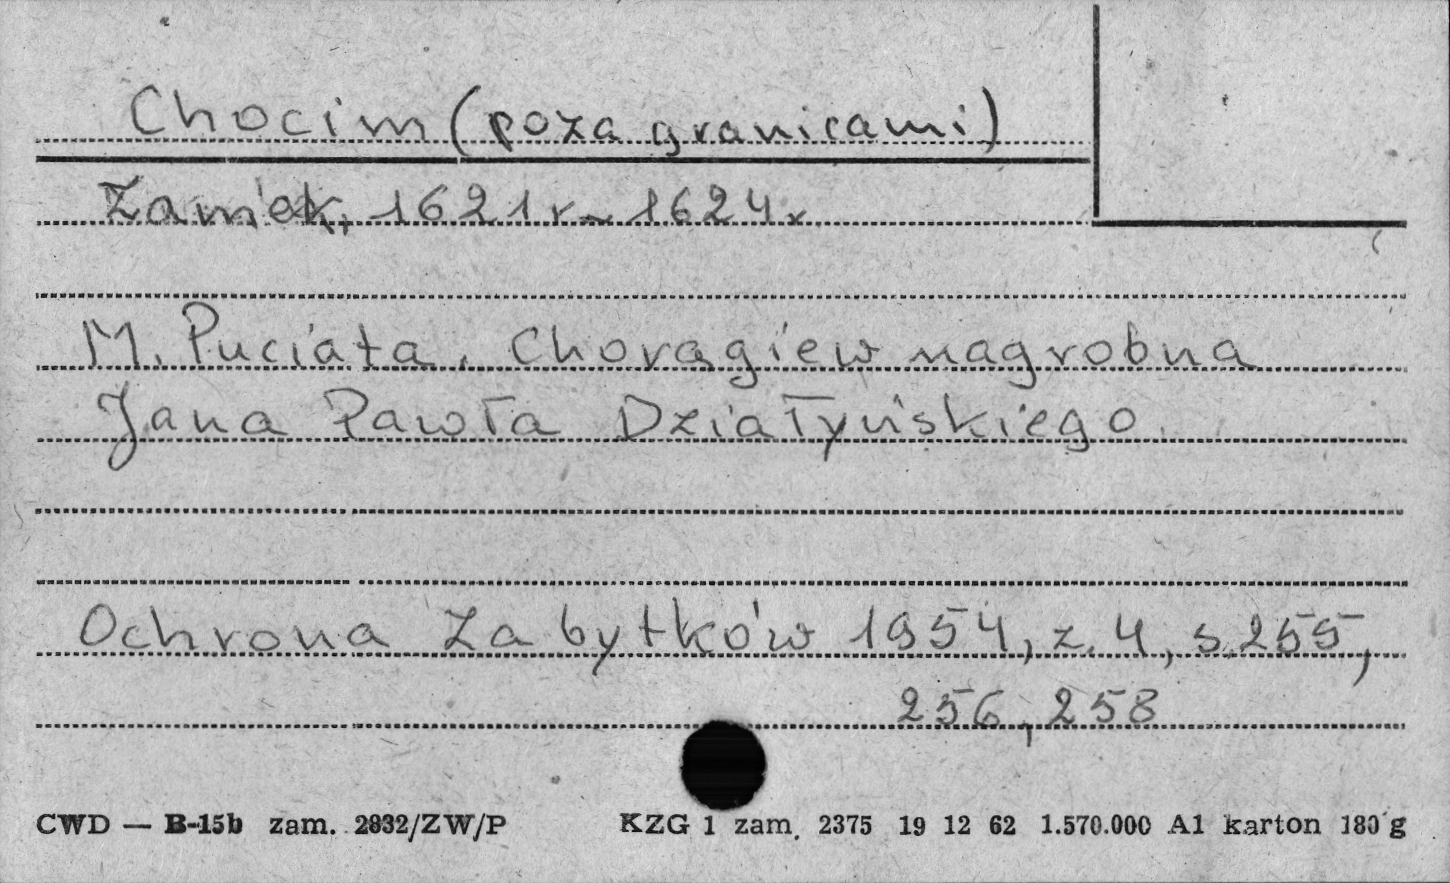 Chocim (poza granicami)
Zamek, 1621 r ~ 1624 r
M. Puciata, Chorągiew nagrobna
Jana Pawła Działyńskiego.
Ochrona Zabytków 1954, z. 4, s. 255,
256, 258
CWD — B-15b zam. 2832/ZW/P KZG 1 zam. 2375 19 12 62 1.570.000 A1 karton 180 g